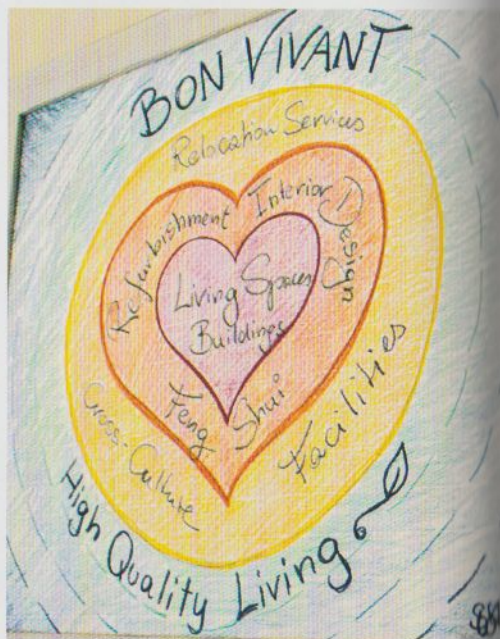 BON VIVANT
Relocation Services
Refurbishment
Interior Design
Living Spaces
Buildings
Feng Shui
Cross-Culture
Facilities
High Quality Living